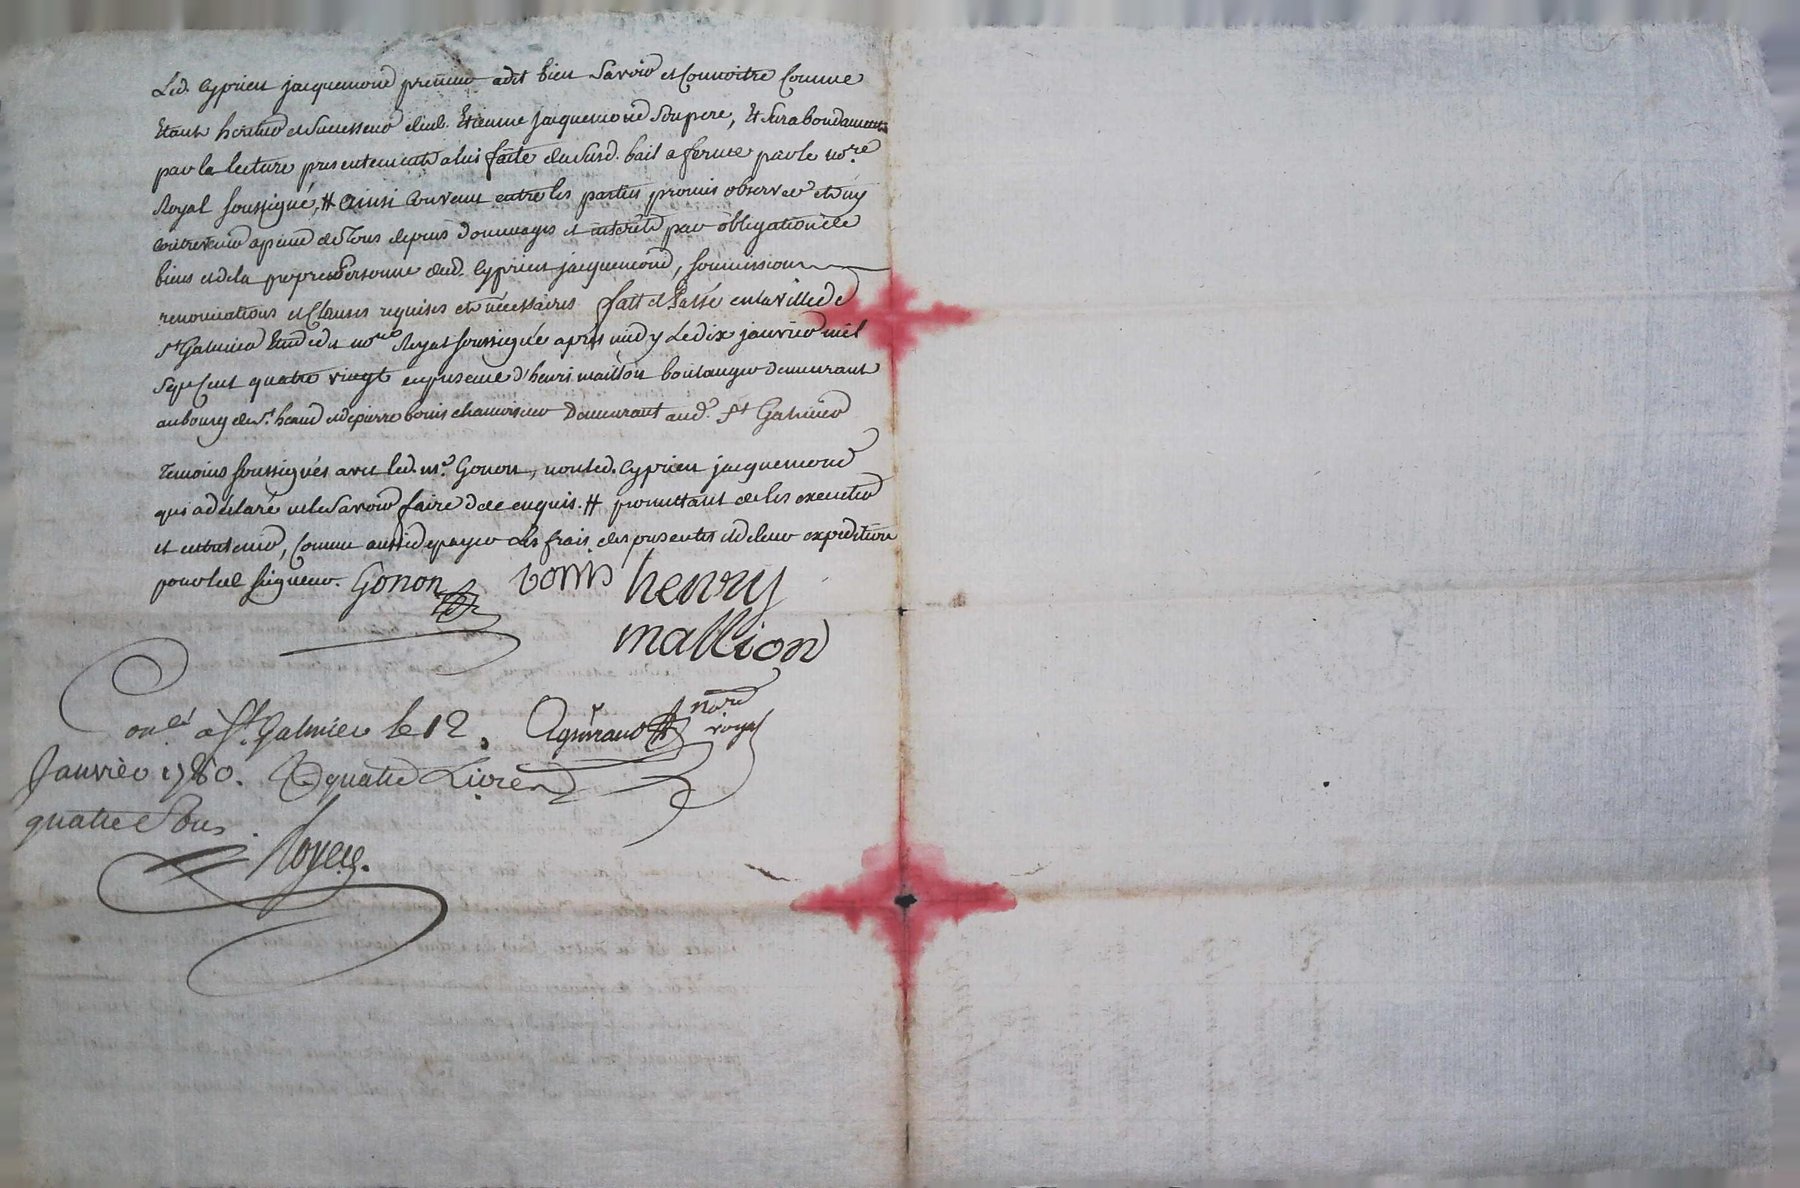 Led. Cyprien jacquemond preneur adit bien Savoir et Connoitre Comme
Etant héritier et Successeur dud. Etienne Jacquemond Son pere, Et Surabondamment
par la lecture presentement a lui faite du Susd. bail a ferme par le nore.
Royal soussigné, # ainsi Convenu entre les parties promis observer et n'y
contrevenir apeine de Tous depens Dommages et interêts par obligation de
biens et de la propre Personne dud. Cyprien jacquemond, soumissions
renonciations et Clauses requises et nécessaires fait et Passé en la ville de
St Galmier Etude du nore Royal soussigné apres midy Le dix janvier mil
Sept Cent quatre vingt en presence d'henri maillon boulanger demeurant
au bourg de St. heand et de pierre bonis chamoiseur Demeurant aud. St Galmier
Temoins soussignés avec led. me. Gonon, non led. Cyprien jacquemond
qui a déclaré ne le Savoir faire de ce enquis. # promettant de les executer
et entretenir, Comme aussi de payer Les frais des presentes et de leur expedition
pour led seigneur. Gonon bonis henry
mallion
Conlé à St. Galmier le 12 nore
Janvier 1780. R quatre Livres royal
quatre Sous.
Royer.